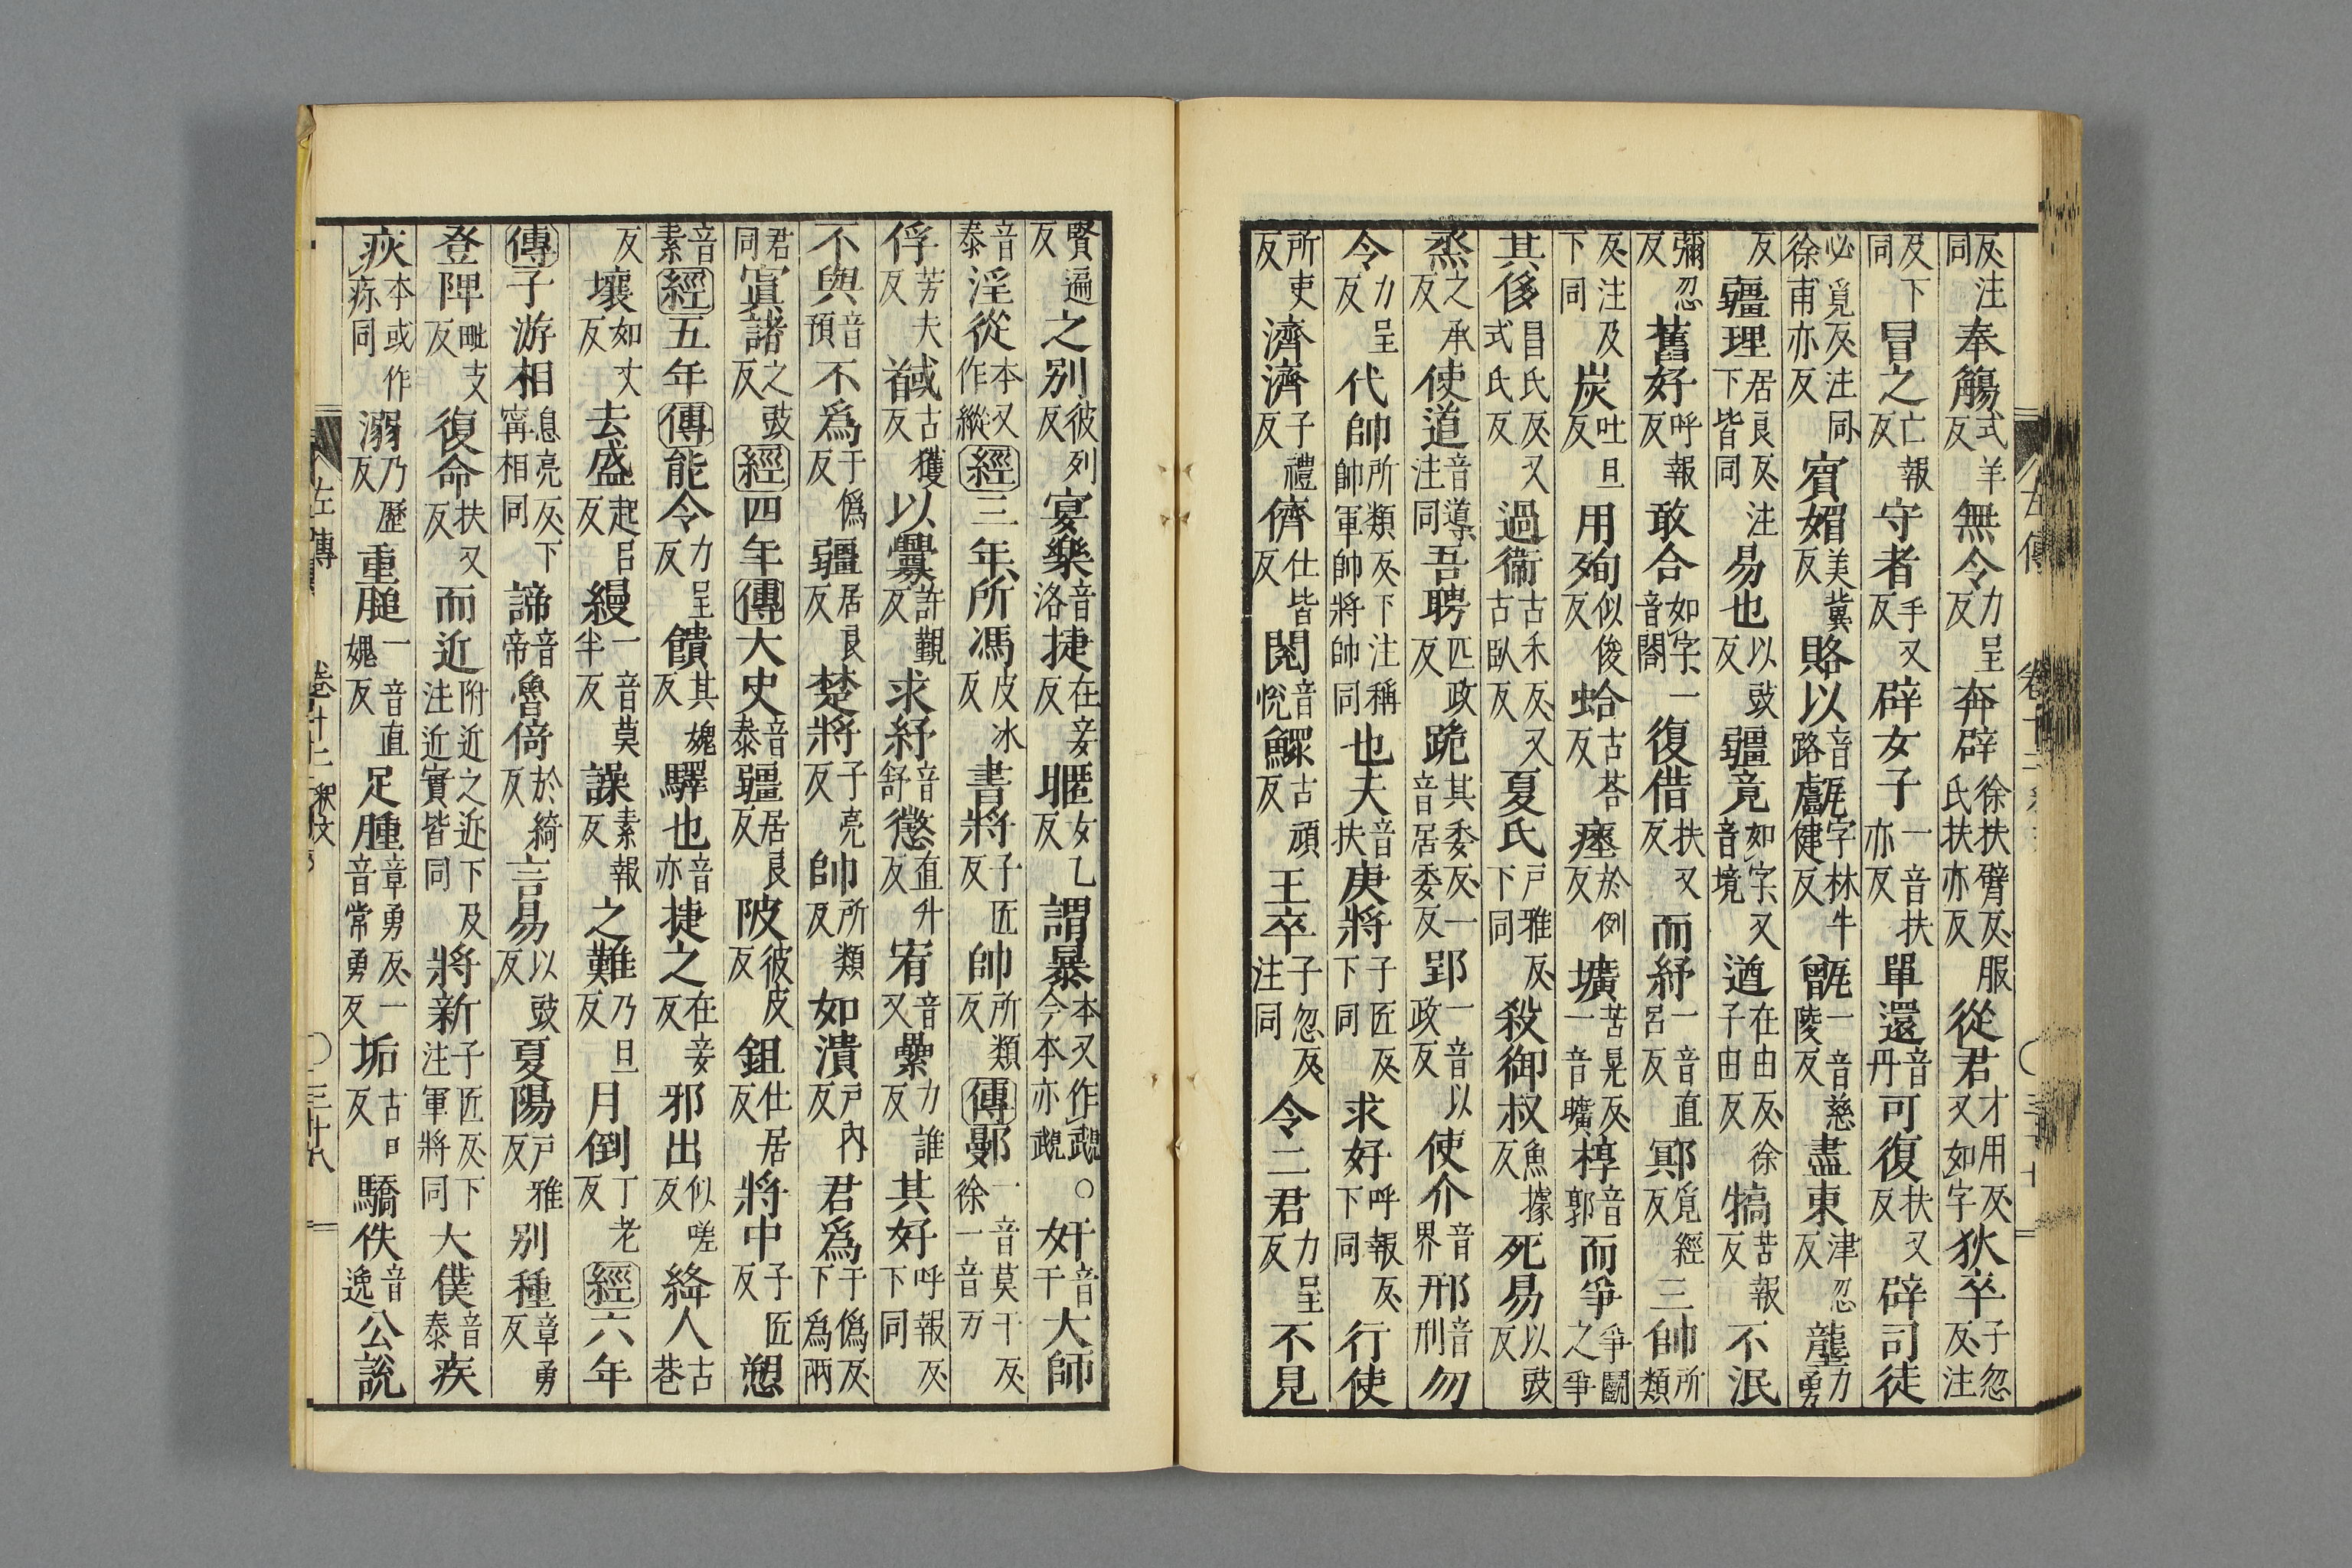 反注同奉觴式羊反無令力呈反奔辟徐扶臂反服氏扶亦反從君才用反又如字狄卒子忽反注
反下同冒之亡報反守者手又反辟女子一音扶亦反單還音丹可復扶又反辟司徒
必覓反注同徐甫亦反賓媚美冀反賂以音路甗字林牛健反甑一音慈陵反盡東津忍反壟力勇
反疆理居良反注下皆同易也以豉反疆竟如字又音境遒在由反徐子由反犒苦報反不泯
彌忍反舊好呼報反敢合如字一音閤復借扶又反而紓一音直呂反鄍覓經反三帥所類
反注及下同炭吐旦反用殉似俊反蛤古荅反瘞於例反壙苦晃反一音曠椁音郭而爭爭鬭之爭
其後昌氏反又式氏反過衞古禾反又古臥反夏氏戶雅反下同殺御叔魚據反死易以豉反
烝之承反使道音導注同吾聘匹政反跪其委反一音居委反郢一音以政反使介音界邢音刑勿
令力呈反代帥所類反下注稱帥軍帥將帥同也夫音扶庚將子匠反下同求好呼報反下同行使
所吏反濟濟子禮反儕仕皆反閱音悅鰥古頑反王卒子忽反注同令二君力呈反不見
賢遍反之別彼列反宴樂音洛捷在妾反暱女乙反謂暴本又作虣今本亦虣○奸音干大師
音泰淫從本又作縱經三年所馮皮冰反書將子匠反帥所類反傳鄤一音莫干反徐一音万
俘芳夫反馘古獲反以釁許覲反求紓音舒懲直升反宥音又纍力誰反其好呼報反下同
不與音預不爲于僞反疆居良反楚將子亮反帥所類反如潰戶內反君爲于僞反下爲兩
君同寘諸之豉反經四年傳大史音泰疆居良反陂彼皮反鉏仕居反將中子匠反愬
音素經五年傳能令力呈反饋其媿反驛也音亦捷之在妾反邪出似嗟反絳人古巷
反壤如丈反去盛起呂反縵一音莫半反譟素報反之難乃旦反月倒丁老反經六年
傳子游相息亮反下甯相同諦音帝魯倚於綺反言易以豉反夏陽戶雅反別種章勇反
登陴毗支反復命扶又反而近附近之近下及注近實皆同將新子匠反下注軍將同大僕音泰疾
疢本或作疹同溺乃歷反重膇一音直媿反足腫章勇反一音常勇反垢古口反驕佚音逸公說
左傳 卷十二 釋文 ○三十八